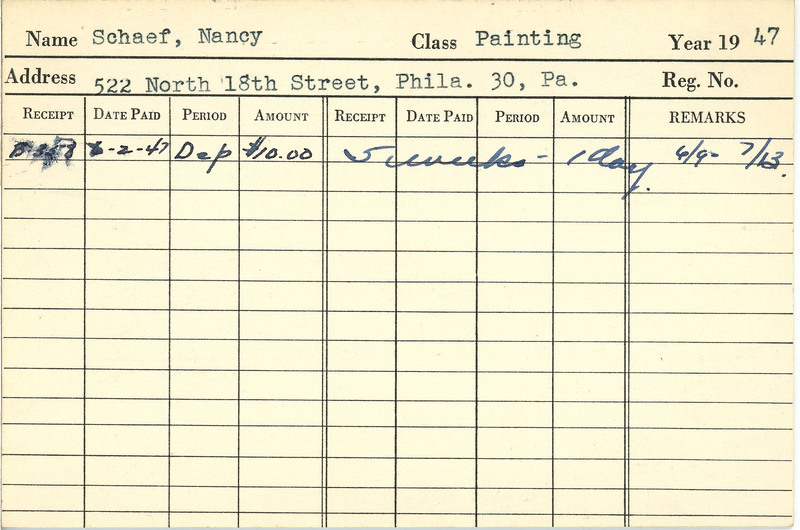 Name Schaef, Nancy Class Painting Year 19 47
Address 522 North 18th Street, Phila. 30, Pa. Reg. No.
RECEIPT DATE PAID PERIOD AMOUNT RECEIPT DATE PAID PERIOD AMOUNT REMARKS
6-2-47 Dep $10.00 5 weeks - 1 day. 6/9- 7/13.